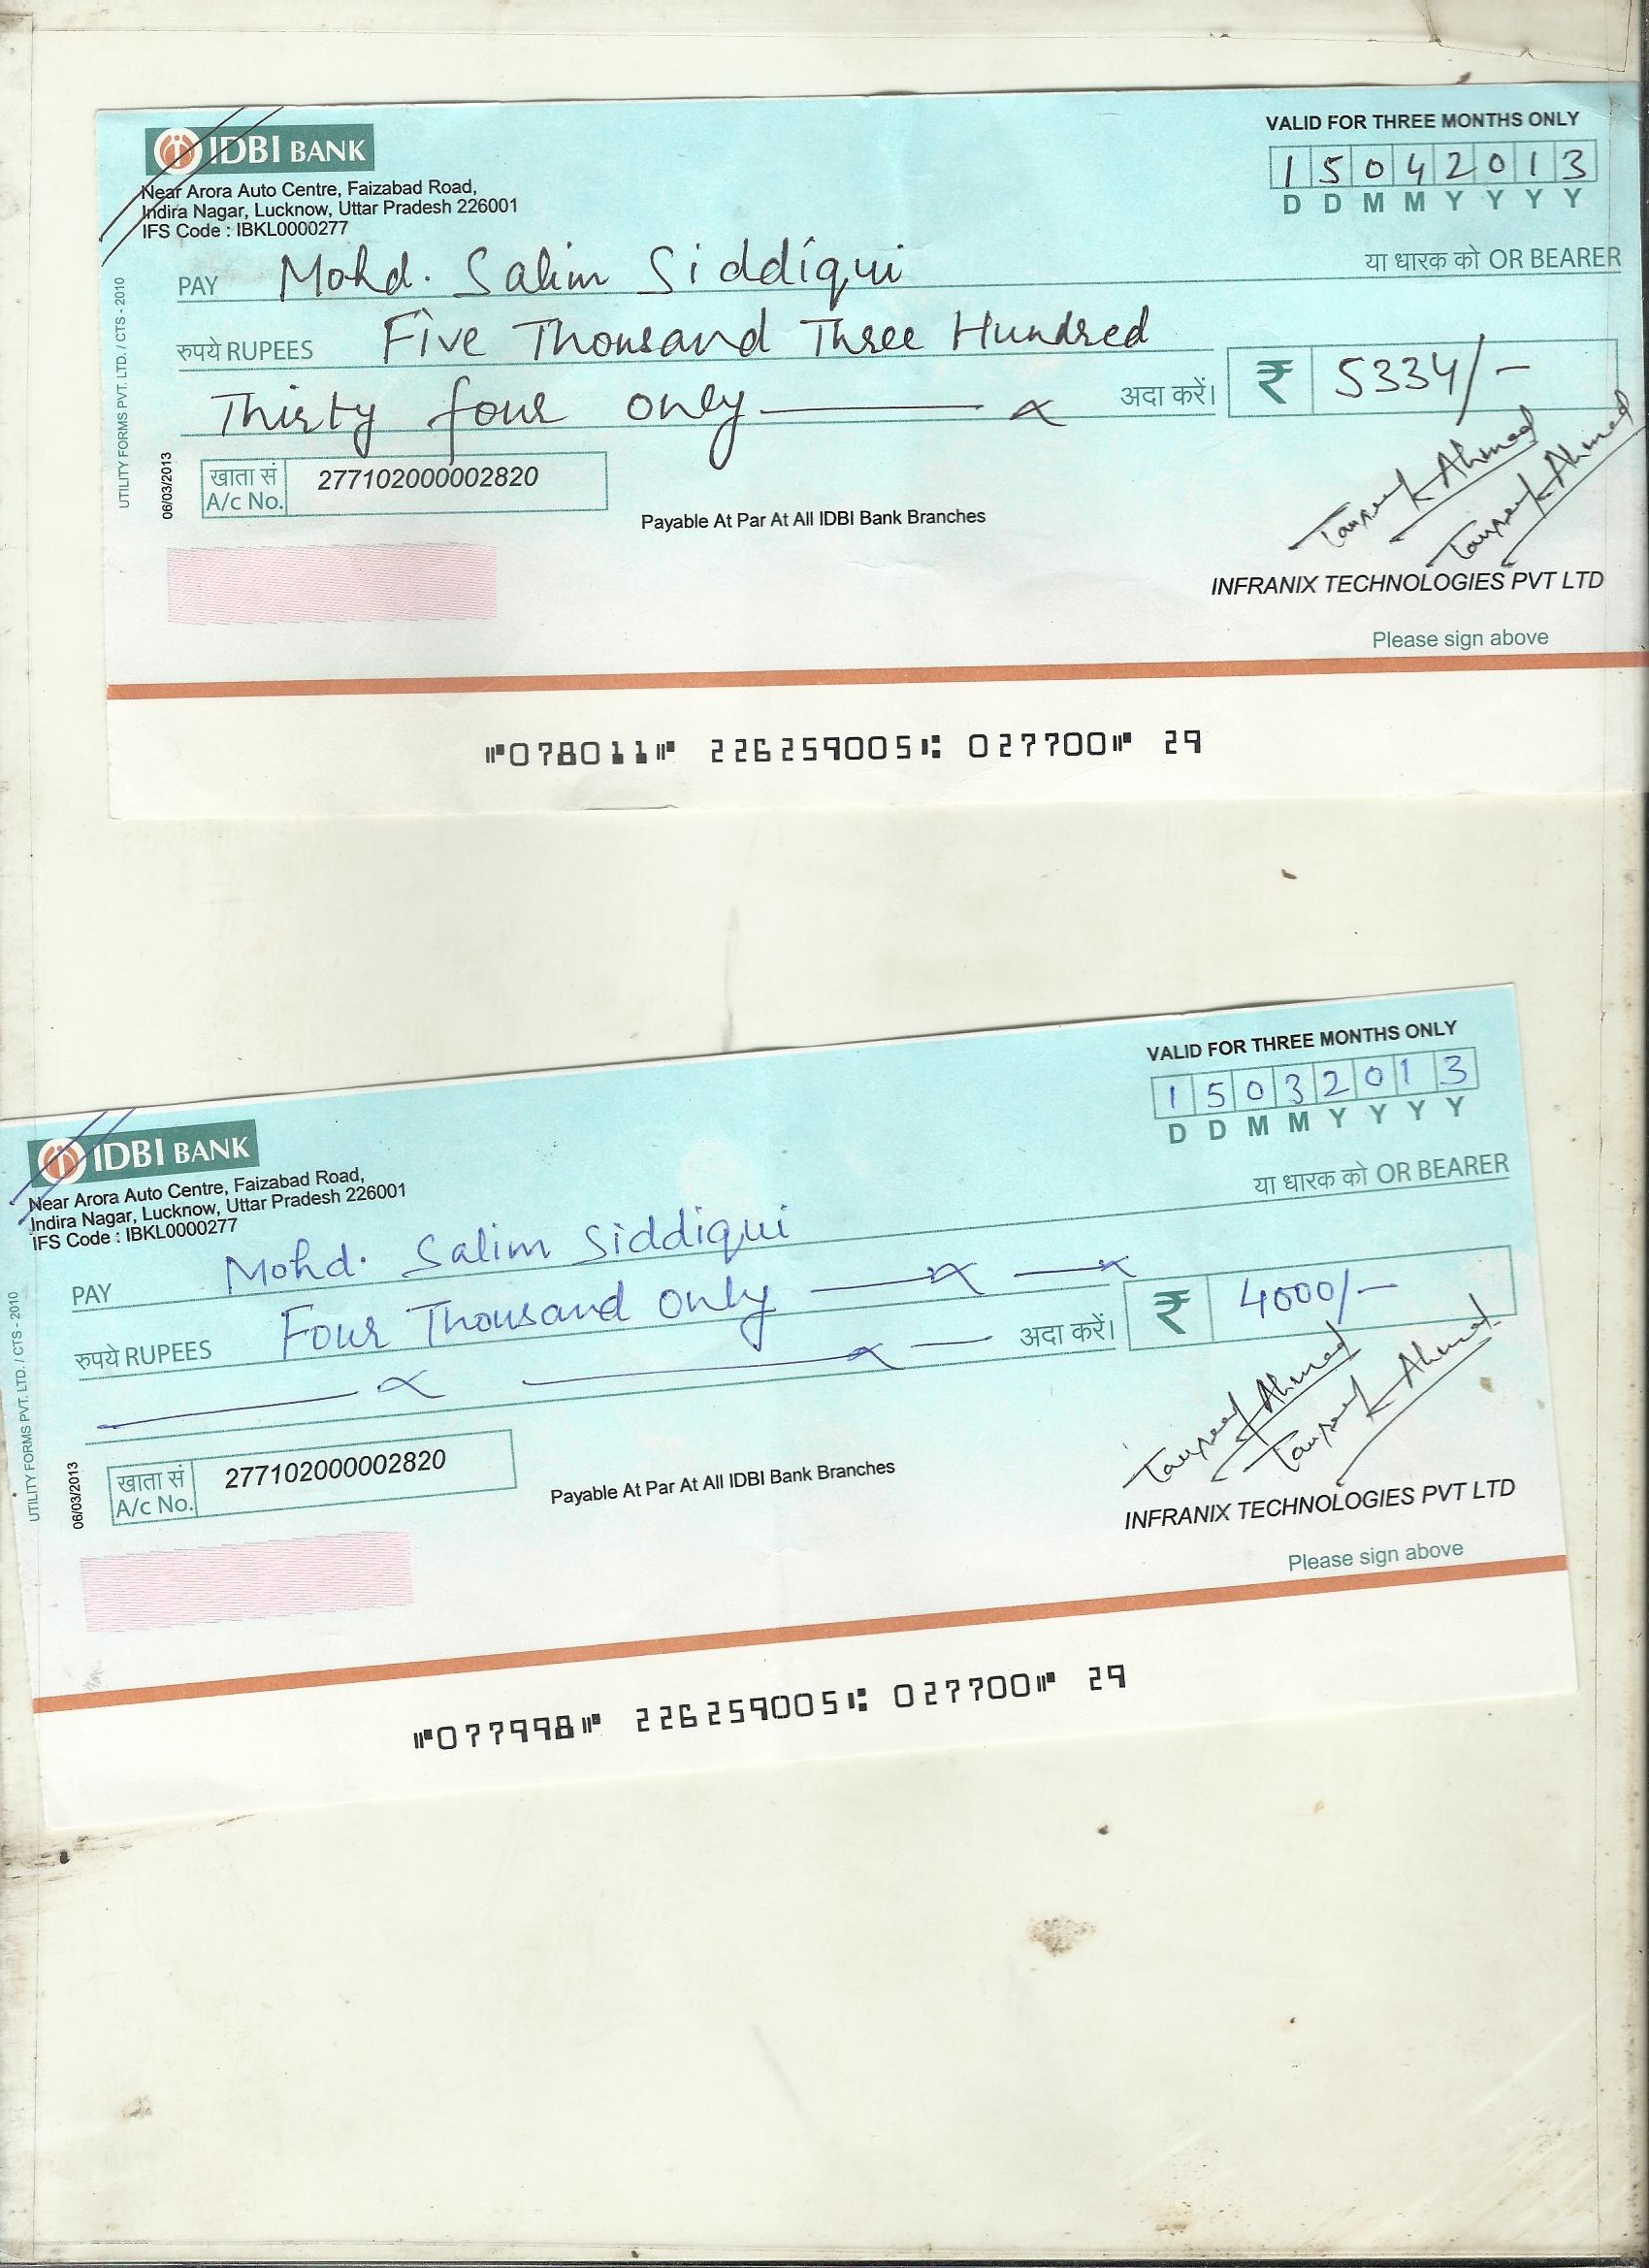 IDBI BANK
Near Arora Auto Centre, Faizabad Road,
Indira Nagar, Lucknow, Uttar Pradesh 226001
IFS Code : IBKL0000277
VALID FOR THREE MONTHS ONLY
15042013
D D M M Y Y Y Y
PAY Mohd. Salim Siddiqui या धारक को OR BEARER
रुपये RUPEES Five Thousand Three Hundred
Thirty four only अदा करें। ₹ 5334/-
UTILITY FORMS PVT. LTD. / CTS - 2010
06/03/2013
खाता सं
A/c No. 277102000002820
Payable At Par At All IDBI Bank Branches
Tauseef Ahmad
Tauseef Ahmad
INFRANIX TECHNOLOGIES PVT LTD
Please sign above
⑈078011⑈ 226259005⑆ 027700⑈ 29
IDBI BANK
Near Arora Auto Centre, Faizabad Road,
Indira Nagar, Lucknow, Uttar Pradesh 226001
IFS Code : IBKL0000277
VALID FOR THREE MONTHS ONLY
15032013
D D M M Y Y Y Y
PAY Mohd. Salim Siddiqui या धारक को OR BEARER
रुपये RUPEES Four Thousand Only
अदा करें। ₹ 4000/-
UTILITY FORMS PVT. LTD. / CTS - 2010
06/03/2013
खाता सं
A/c No. 277102000002820
Payable At Par At All IDBI Bank Branches
Tauseef Ahmad
Tauseef Ahmad
INFRANIX TECHNOLOGIES PVT LTD
Please sign above
⑈077998⑈ 226259005⑆ 027700⑈ 29